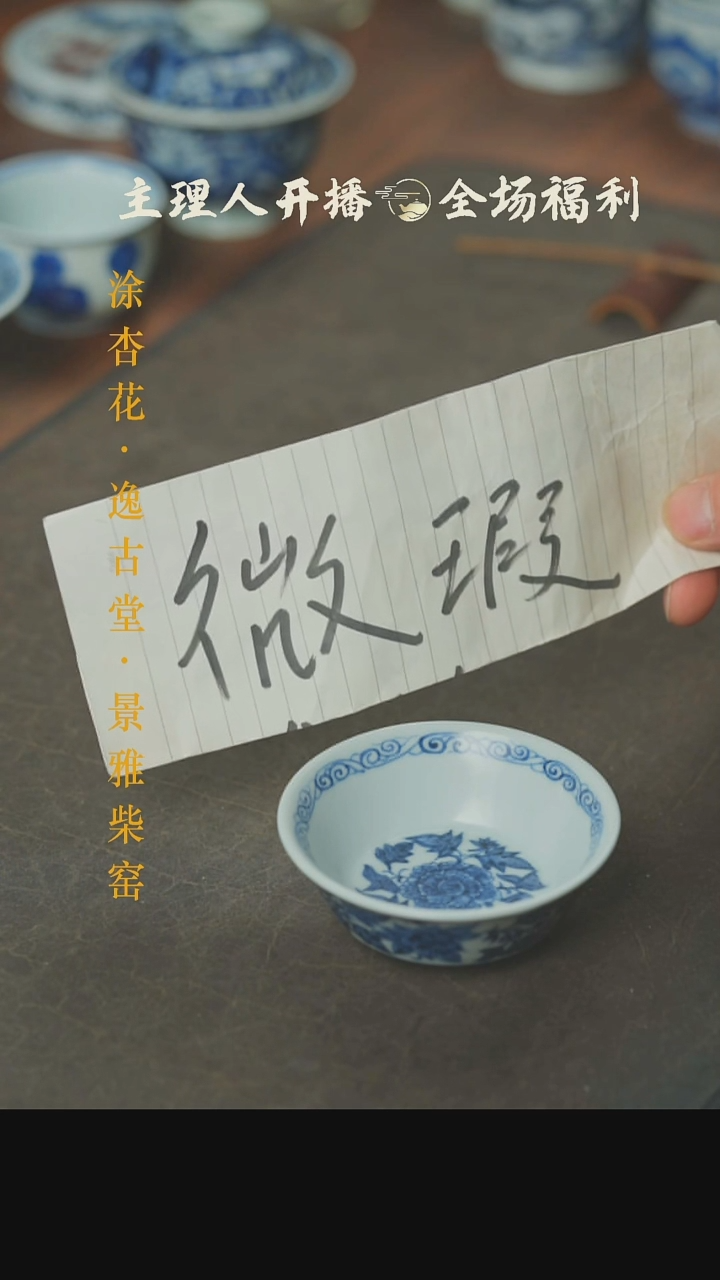 主理人开播 全场福利
涂杏花·逸古堂·景雅柴窑
微瑕